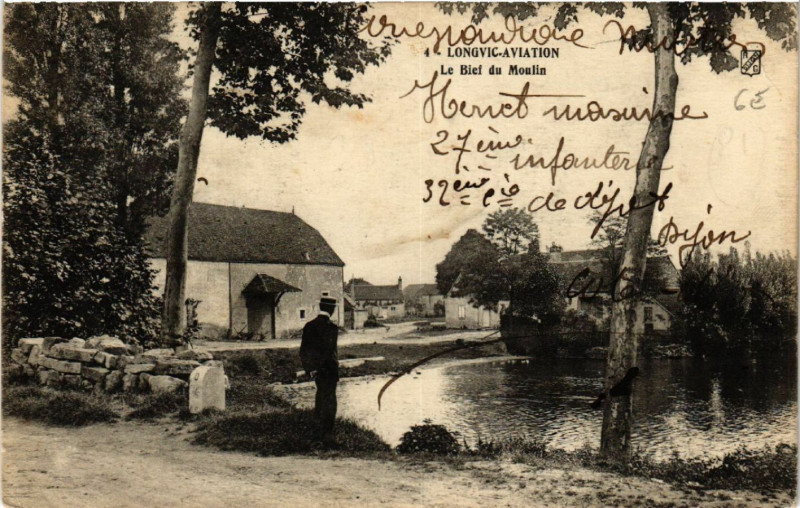 correspondance Militaire
4 LONGVIC-AVIATION
Le Bief du Moulin
6E
Henriet maxime
27ème infanterie
32ème Cie de dépot
Dijon